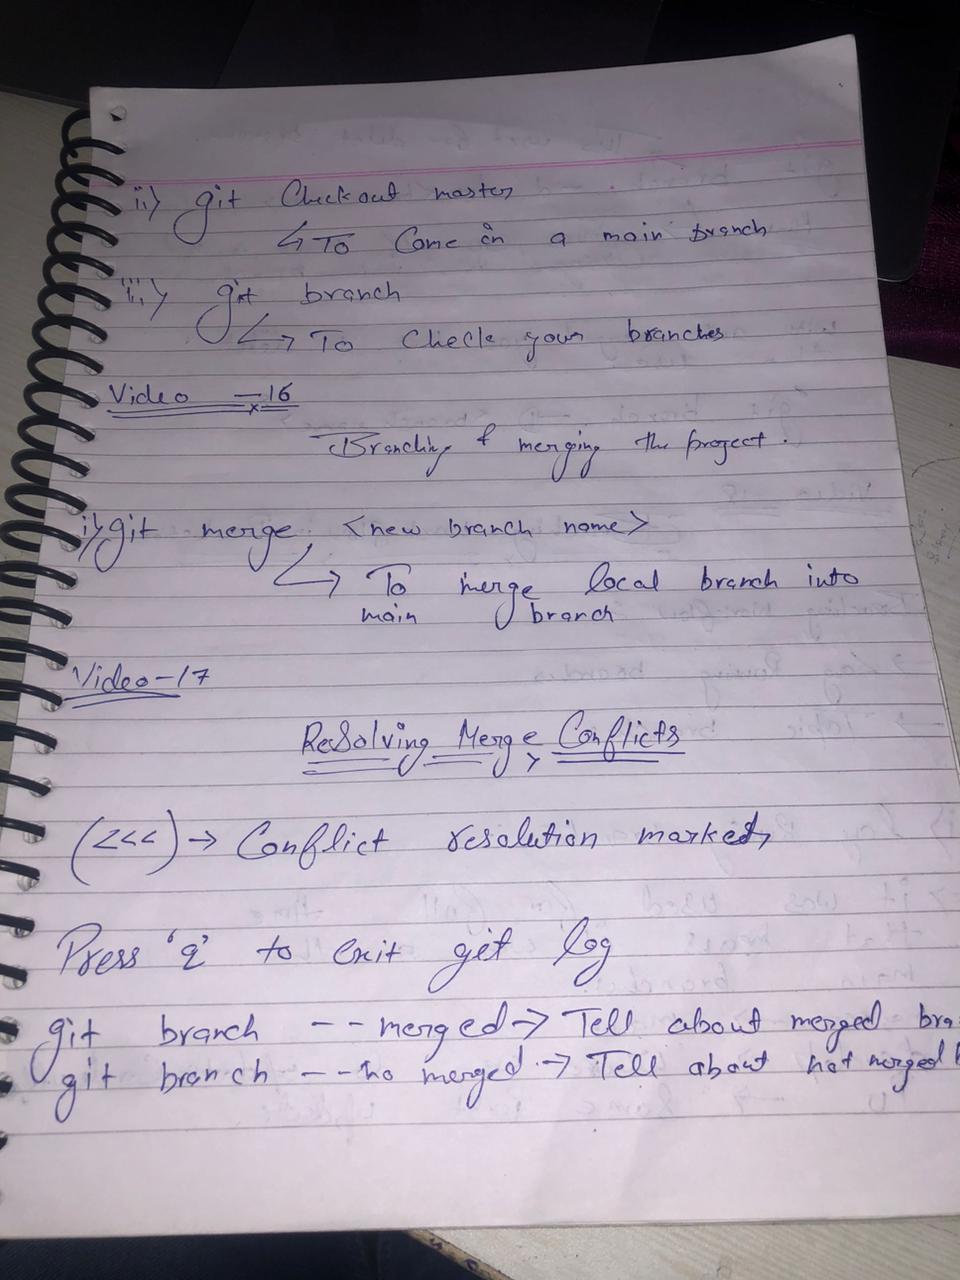 ii) git Checkout master
↳ To Come on a main branch
iii) git branch
↳ To Check your branches
Video - 16
Branching & merging the project.
i) git merge <new branch name>
↳ To merge local branch into
main branch
Video-17
Resolving Merge Conflicts
(<<<) → Conflict resolution marker
Press 'q' to exit get log
git branch -- merged → Tell about merged bra
git branch -- no merged → Tell about not merged